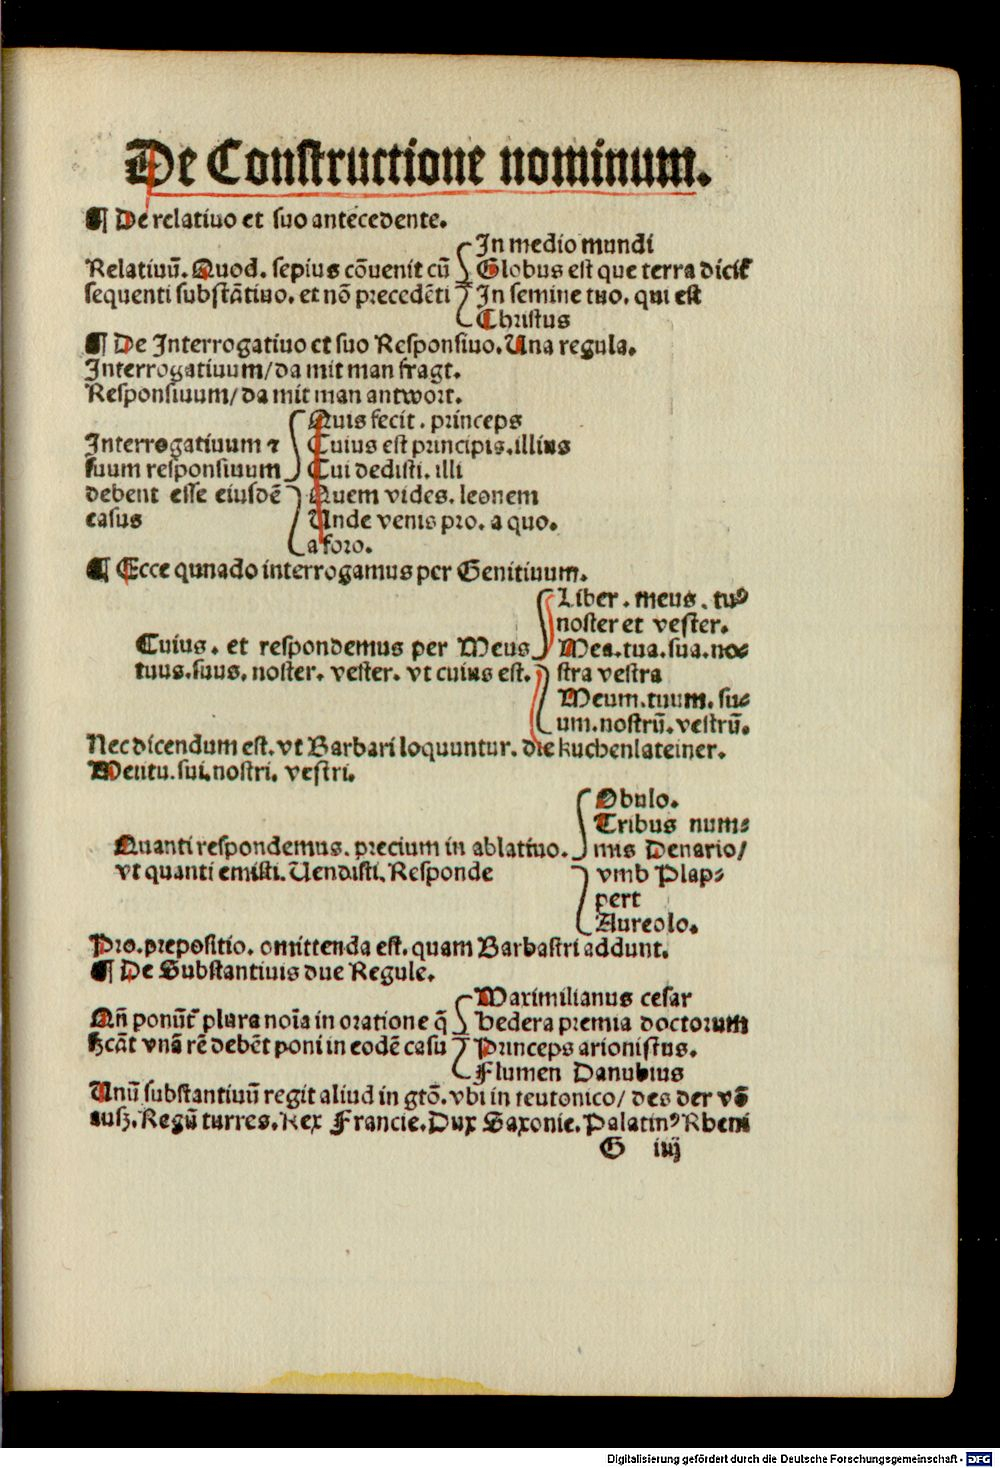 De Constructione nominum.
¶ De relatiuo et suo antecedente.
In medio mundi
Relatiuū. Quod. sepius cōuenit cū Globus est que terra dicit̄
sequenti substātiuo. et nō precedēti In semine tuo. qui est
Christus
¶ De Interrogatiuo et suo Responsiuo. Una regula.
Interrogatiuum/ da mit man fragt.
Responsiuum/ da mit man antwort.
Quis fecit. princeps
Interrogatiuum ⁊ Cuius est principis. illius
suum responsiuum Cui dedisti. illi
debent esse eiusdē Quem vides. leonem
casus Unde venis pro. a quo.
a foro.
¶ Ecce qunado interrogamus per Genitiuum.
Liber. meus. tuꝰ
noster et vester.
Cuius. et respondemus per Meus Mea. tua. sua. no⸗
tuus. suus. noster. vester. vt cuius est. stra vestra
Meum. tuum. su⸗
um. nostrū. vestrū.
Nec dicendum est. vt Barbari loquuntur. die kuchenlateiner.
Mentu. sui. nostri. vestri.
Obulo.
Tribus num⸗
Quanti respondemus. precium in ablatiuo. mis Denario/
vt quanti emisti. Uendisti. Responde vmb Plap⸗
pert
Aureolo.
Pro. prepositio. omittenda est. quam Barbastri addunt.
¶ De Substantiuis due Regule.
Maximilianus cesar
Qn̄ ponūt̄ plura noīa in oratione q̄ hedera premia doctorum
ſcāt vnā rē debēt poni in eodē casu Princeps arionistus.
Flumen Danubius
Unū substantiuū regit aliud in gtō. vbi in teutonico/ des der vō
ausz. Regū turres. Rex Francie. Dux Saxonie. Palatinꝰ Rheni
G iiij
Digitalisierung gefördert durch die Deutsche Forschungsgemeinschaft - DFG